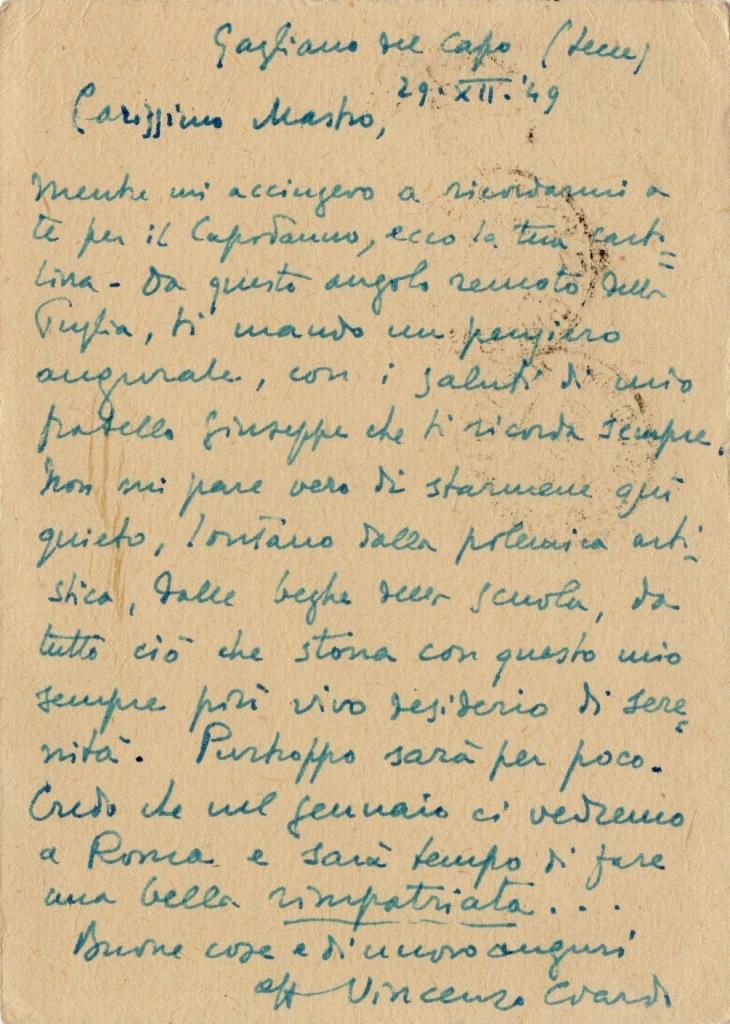 Gagliano del Capo (Lecce)
29.XII.'49
Carissimo Mastro,
mentre mi accingevo a ricordarmi a
te per il Capodanno, ecco la tua carto=
lina - Da questo angolo remoto della
Puglia, ti mando un pensiero
augurale, con i saluti di mio
fratello Giuseppe che ti ricorda sempre.
Non mi pare vero di starmene qui
quieto, lontano dalla polemica arti-
stica, dalle beghe della scuola, da
tutto ciò che stona con questo mio
sempre più vivo desiderio di sere=
nità. Purtroppo sarà per poco.
Credo che nel gennaio ci vedremo
a Roma e sarà tempo di fare
una bella rimpatriata...
Buone cose e di nuovo auguri
aff Vincenzo Ciardo